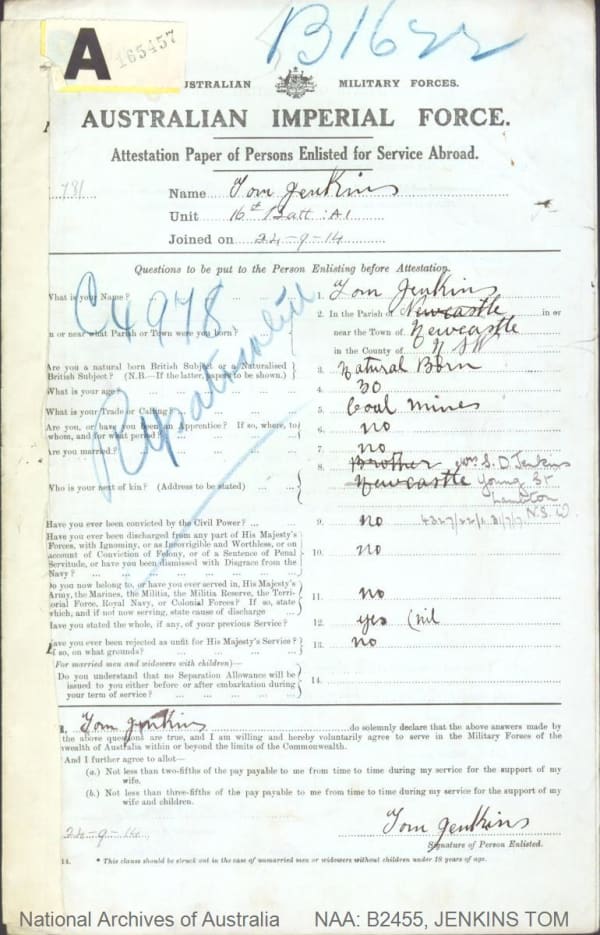 A
165457
B1622
USTRALIAN MILITARY FORCES.
AUSTRALIAN IMPERIAL FORCE.
Attestation Paper of Persons Enlisted for Service Abroad.
781
Name Tom Jenkins
Unit 16th Batt: A1
Joined on 24-9-14
Questions to be put to the Person Enlisting before Attestation.
C4978
What is your Name? 1. Tom Jenkins
2. In the Parish of Newcastle in or
n or near what Parish or Town were you born? near the Town of Newcastle
in the County of N SW
Are you a natural born British Subject or a Naturalised
British Subject? (N.B.—If the latter, papers to be shown.) 3. Natural Born
What is your age? 4. 30
What is your Trade or Calling? 5. Coal Miner
Are you, or have you been an Apprentice? If so, where, to
whom, and for what period? 6. no
Are you married? 7. no
8. Brother Wm S. D. Jenkins
Who is your next of kin? (Address to be stated) Newcastle Young St
N.S.W.
Have you ever been convicted by the Civil Power? 9. no
Have you ever been discharged from any part of His Majesty's
Forces, with Ignominy, or as Incorrigible and Worthless, or on
account of Conviction of Felony, or of a Sentence of Penal
Servitude, or have you been dismissed with Disgrace from the
Navy? 10. no
Do you now belong to, or have you ever served in, His Majesty's
Army, the Marines, the Militia, the Militia Reserve, the Terri-
orial Force, Royal Navy, or Colonial Forces? If so, state
which, and if not now serving, state cause of discharge 11. no
Have you stated the whole, if any, of your previous Service? 12. yes (nil
Have you ever been rejected as unfit for His Majesty's Service?
f so, on what grounds? 13. no
(For married men and widowers with children)—
Do you understand that no Separation Allowance will be
issued to you either before or after embarkation during
your term of service? 14.
I, Tom Jenkins do solemnly declare that the above answers made by
the above questions are true, and I am willing and hereby voluntarily agree to serve in the Military Forces of the
wealth of Australia within or beyond the limits of the Commonwealth.
And I further agree to allot—
(a.) Not less than two-fifths of the pay payable to me from time to time during my service for the support of my
wife.
(b.) Not less than three-fifths of the pay payable to me from time to time during my service for the support of my
wife and children.
24-9-14
Tom Jenkins
Signature of Person Enlisted.
14. * This clause should be struck out in the case of unmarried men or widowers without children under 18 years of age.
National Archives of Australia NAA: B2455, JENKINS TOM